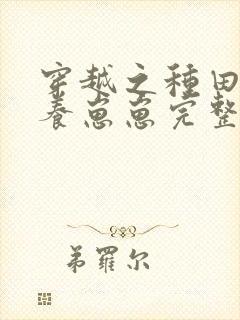 穿越之種田
養崽崽完整
弟羅尔